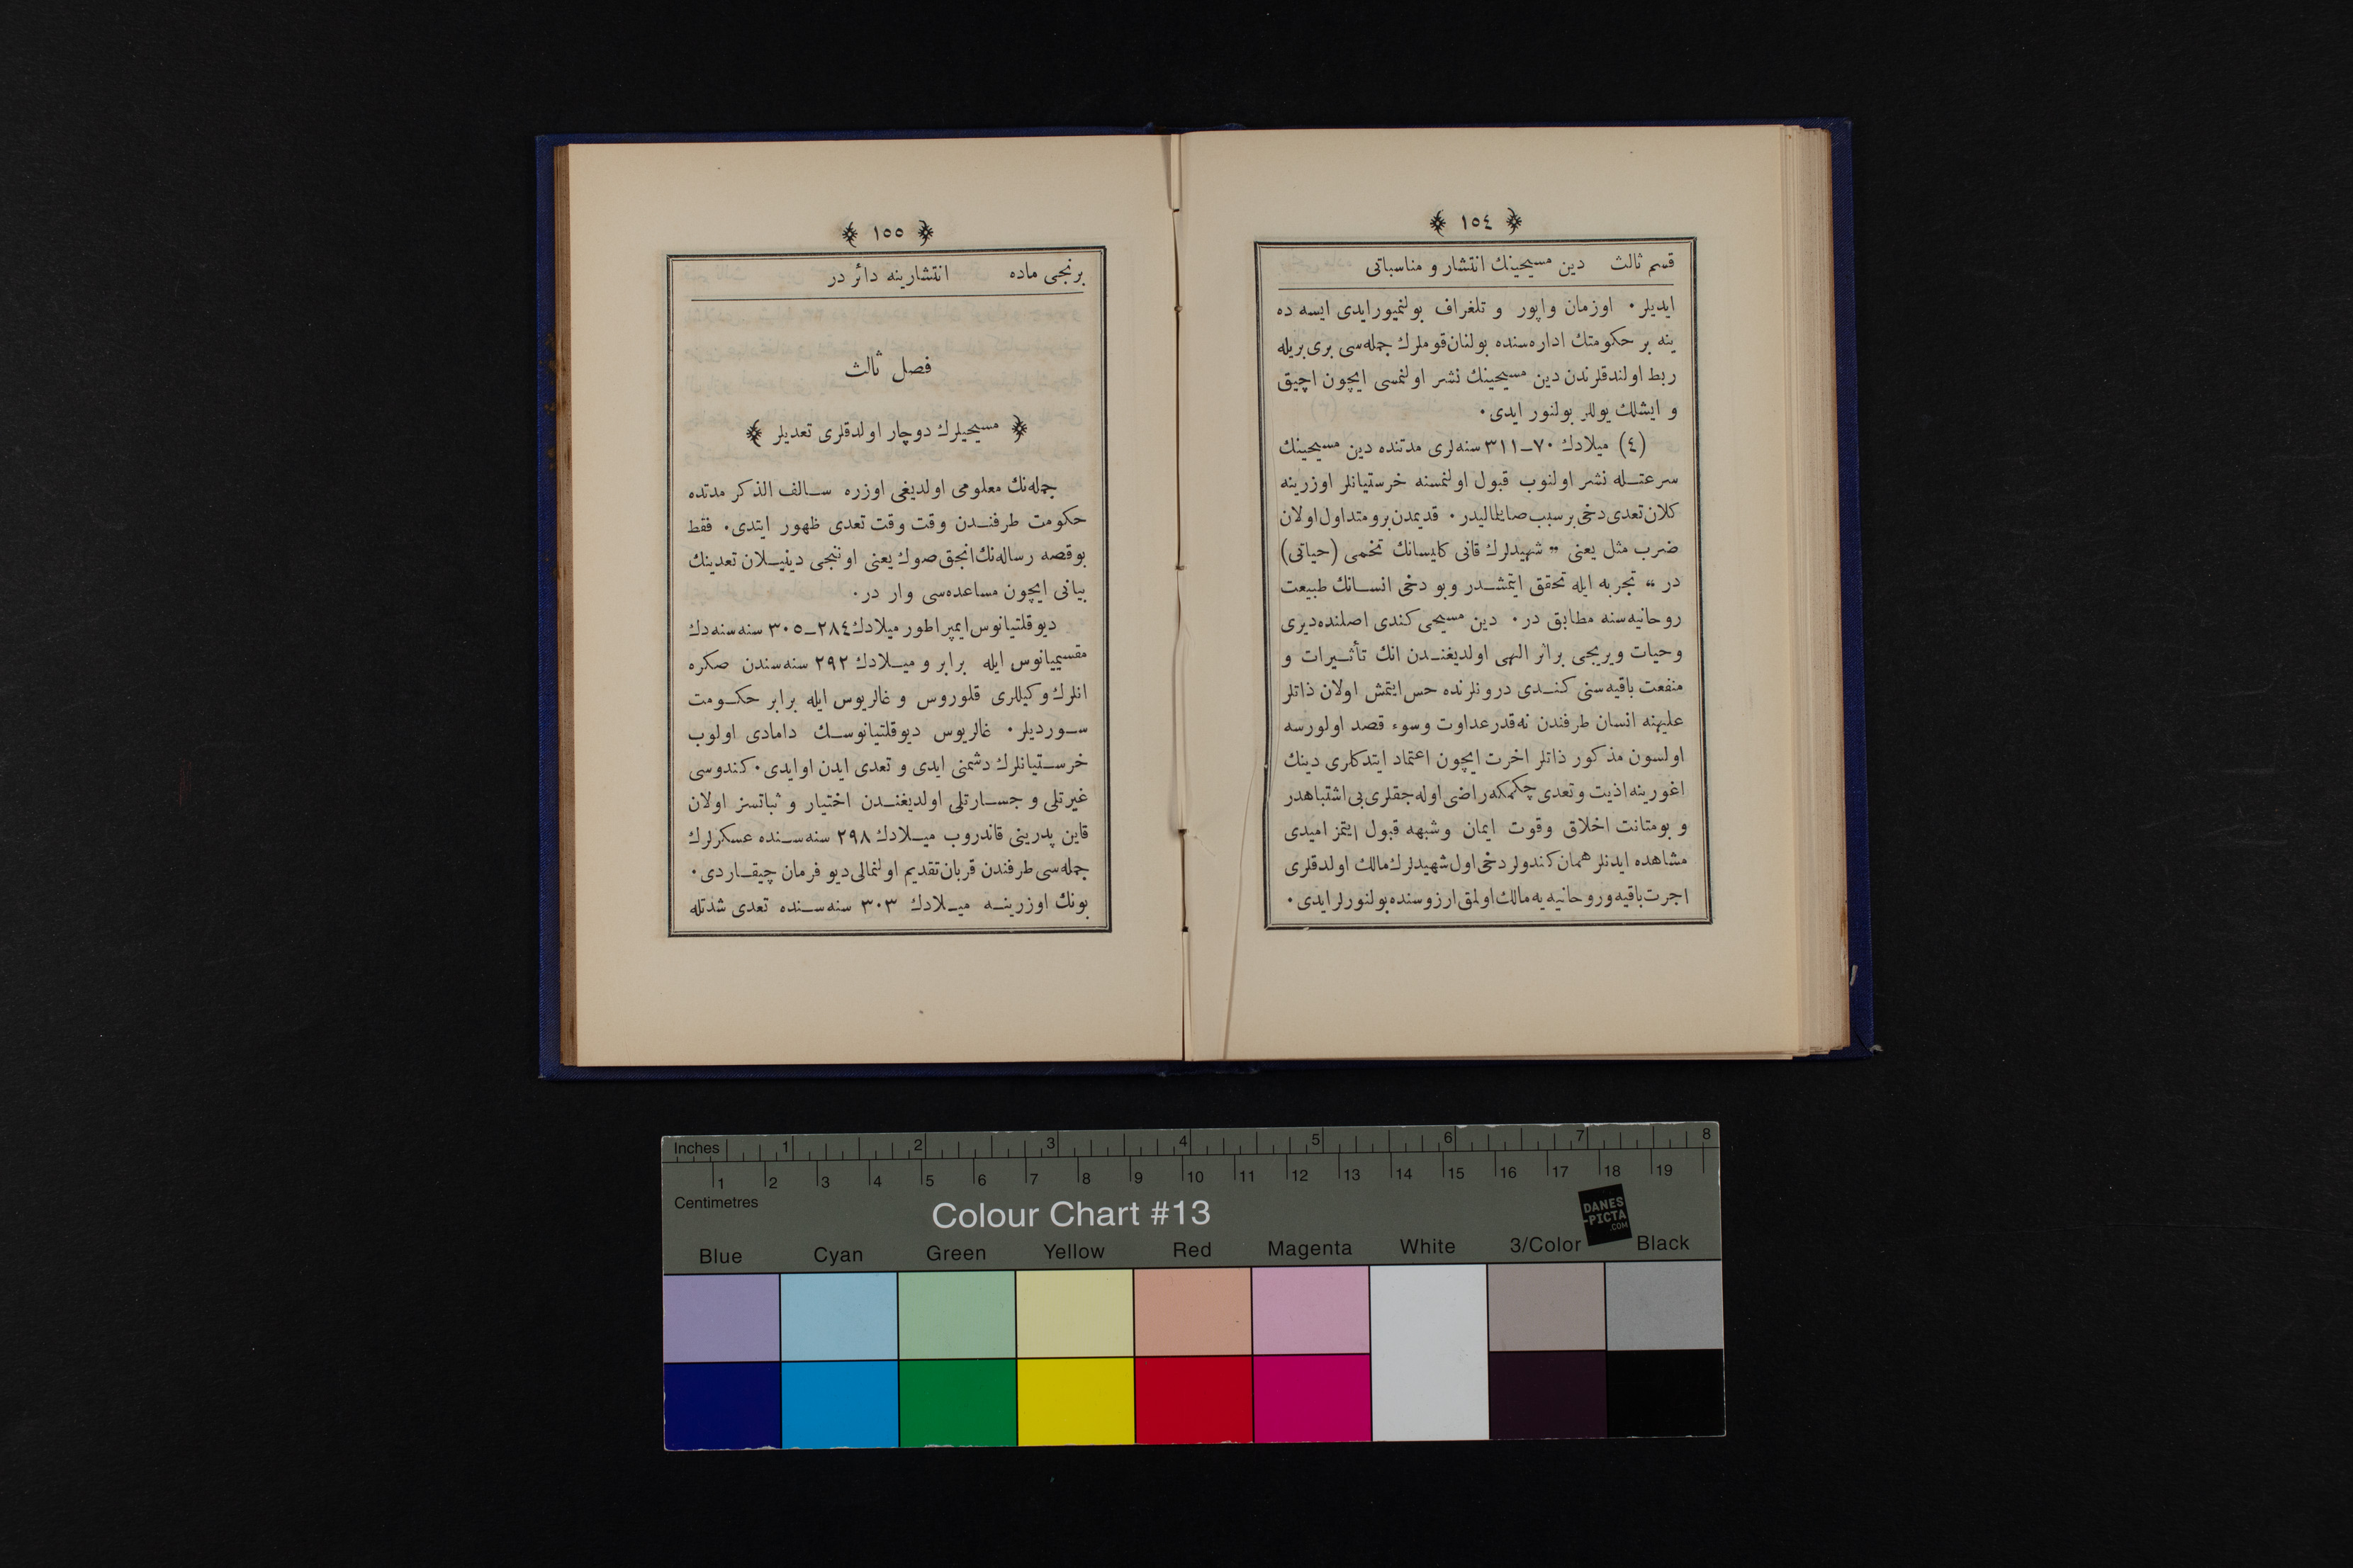 ﴿ ١٥٤ ﴾
قسم ثالث دین مسیحینك انتشار و مناسباتی
ایدیلر۰ اوزمان واپور و تلغراف بولنمیورایدی ایسه ده
ینه بر حكومتك اداره‌سنده بولنان قوملرك جمله‌سی بری بریله
ربط اولندقلرندن دین مسیحینك نشر اولنمسی ایچون اچیق
و ایشلك یوللر بولنور ایدی۰
(٤) میلادك ٧٠ـ٣١١ سنه‌لری مدتنده دین مسیحینك
سرعتــله نشر اولنوب قبول اولنمسنه خرستیانلر اوزرینه
كلان تعدی دخی بر سبب صایلمالیدر۰ قدیمدن برو متداول اولان
ضرب مثل یعنی „ شهیدلرك قانی كلیسانك تخمی (حیاتی)
در “ تجربه ایله تحقق ایتمشــدر وبو دخی انســانك طبیعت
روحانیه‌سنه مطابق در۰ دین مسیحی كندی اصلنده دیری
وحیات ویریجی براثر الهی اولدیغنــدن انك تأثــیرات و
منفعت باقیه‌سنی كنــدی درونلرنده حس ایتمش اولان ذاتلر
علیهنه انسان طرفندن نه‌قدر عداوت وسوء قصد اولورسه
اولسون مذكور ذاتلر اخرت ایچون اعتماد ایتدكلری دینك
اغورینه اذیت وتعدی چكمكه راضی اوله‌جقلری بی اشتباهدر
و بومتانت اخلاق وقوت ایمان وشبهه قبول ایتمز امیدی
مشاهده ایدنلر همان كندولر دخی اول شهیدلرك مالك اولدقلری
اجرت باقیه وروحانیه‌یه مالك اولمق ارزوسنده بولنورلر ایدی۰
﴿ ١٥٥ ﴾
برنجی ماده انتشارینه دائر در
فصل ثالث
﴿ مسیحیلرك دوچار اولدقلری تعدیلر ﴾
جمله‌نك معلومی اولدیغی اوزره ســالف الذكر مدتده
حكومت طرفنــدن وقت وقت تعدی ظهور ایتدی۰ فقط
بوقصه رساله‌نك انجق صوك یعنی اوننجی دینیــلان تعدینك
بیانی ایچون مساعده‌سی وار در۰
دیوقلتیانوس ایمپراطور میلادك ٢٨٤ـ٣٠٥ سنه‌سنه‌دك
مقسیمیانوس ایله برابر و میــلادك ٢٩٢ سنه‌سندن صكره
انلرك وكیللری قلوروس و غالریوس ایله برابر حكــومت
ســوردیلر۰ غالریوس دیوقلتیانوســك دامادی اولوب
خرســتیانلرك دشمنی ایدی و تعدی ایدن اوایدی۰ كندوسی
غیرتلی و جســارتلی اولدیغنــدن اختیار و ثباتسز اولان
قاین پدرینی قاندروب میــلادك ٢٩٨ سنه‌ســنده عسكرلرك
جمله‌سی طرفندن قربان تقدیم اولنمالی دیو فرمان چیقــاردی۰
بونك اوزرینــه میــلادك ٣٠٣ سنه‌ســنده تعدی شدتله
Inches 1 2 3 4 5 6 7 8
1 2 3 4 5 6 7 8 9 10 11 12 13 14 15 16 17 18 19
Centimetres
Colour Chart #13
DANES
-PICTA
.COM
Blue Cyan Green Yellow Red Magenta White 3/Color Black